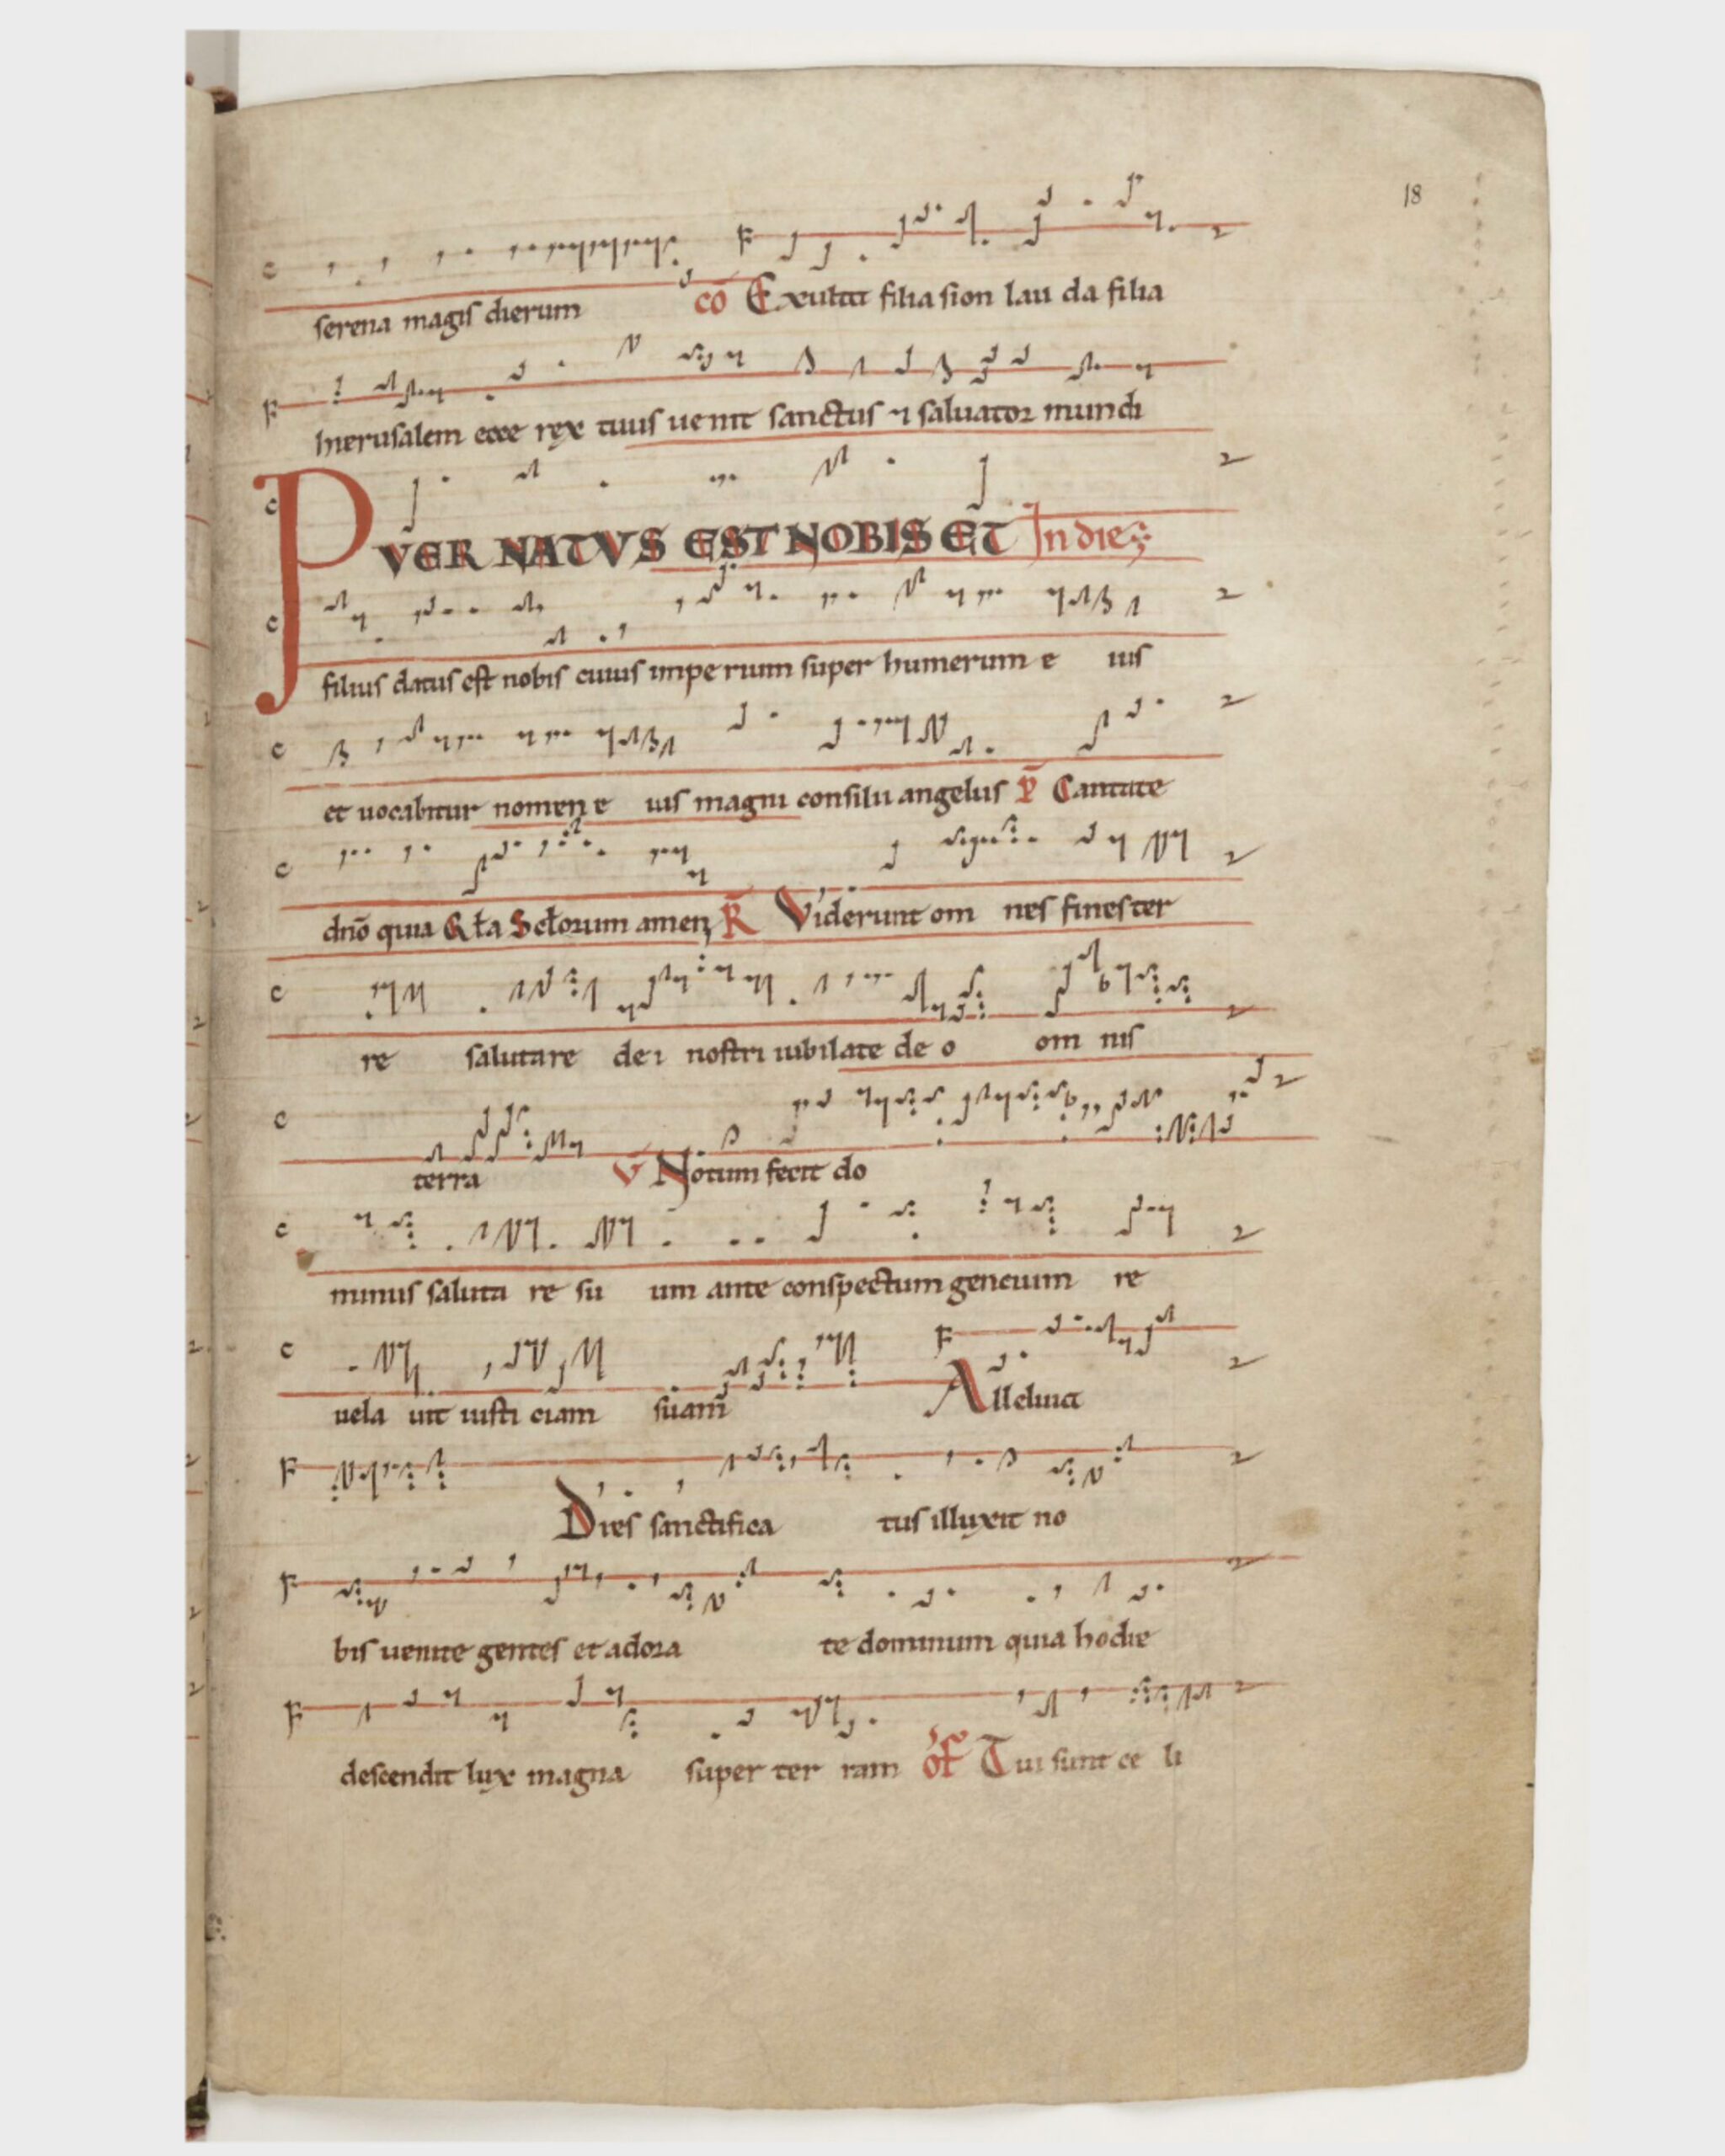 18
serena magis dierum cō Exulta filia sion lau da filia
hierusalem ecce rex tuus ue nit sanctus ⁊ saluator mundi
PVER NATVS EST NOBIS ET In die
filius datus est nobis cuius impe rium super humerum e ius
et uocabitur nomen e ius magni consilii angelus P̄ Cantate
dnō quia Gła Scłorum amen R̄ Viderunt om nes fines ter
re salutare dei nostri iubilate de o om nis
terra V̄ Notum fecit do
minus saluta re su um ante conspectum gentium re
uela uit iusti ciam suam Alleluia
Dies sanctifica tus illuxit no
bis uenite gentes et adora te dominum quia hodie
descendit lux magna super ter ram of Tui sunt ce li